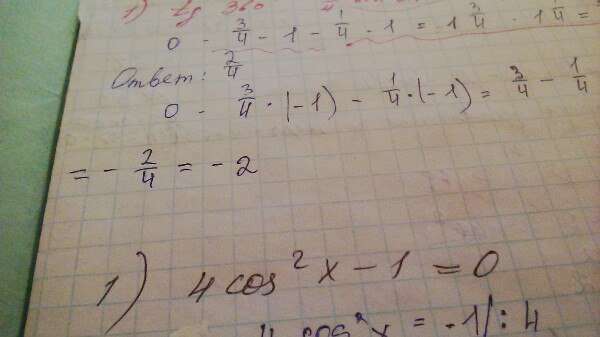 1) tg 360
0 - 3/4 - 1 - 1/4 · 1 = 1 3/4 · 1 1/4 =
Ответ: 2/4
0 - 3/4 · (-1) - 1/4 · (-1) = 3/4 - 1/4
= - 2/4 = - 2
1) 4 cos² x - 1 = 0
4 cos² x = -1 / : 4